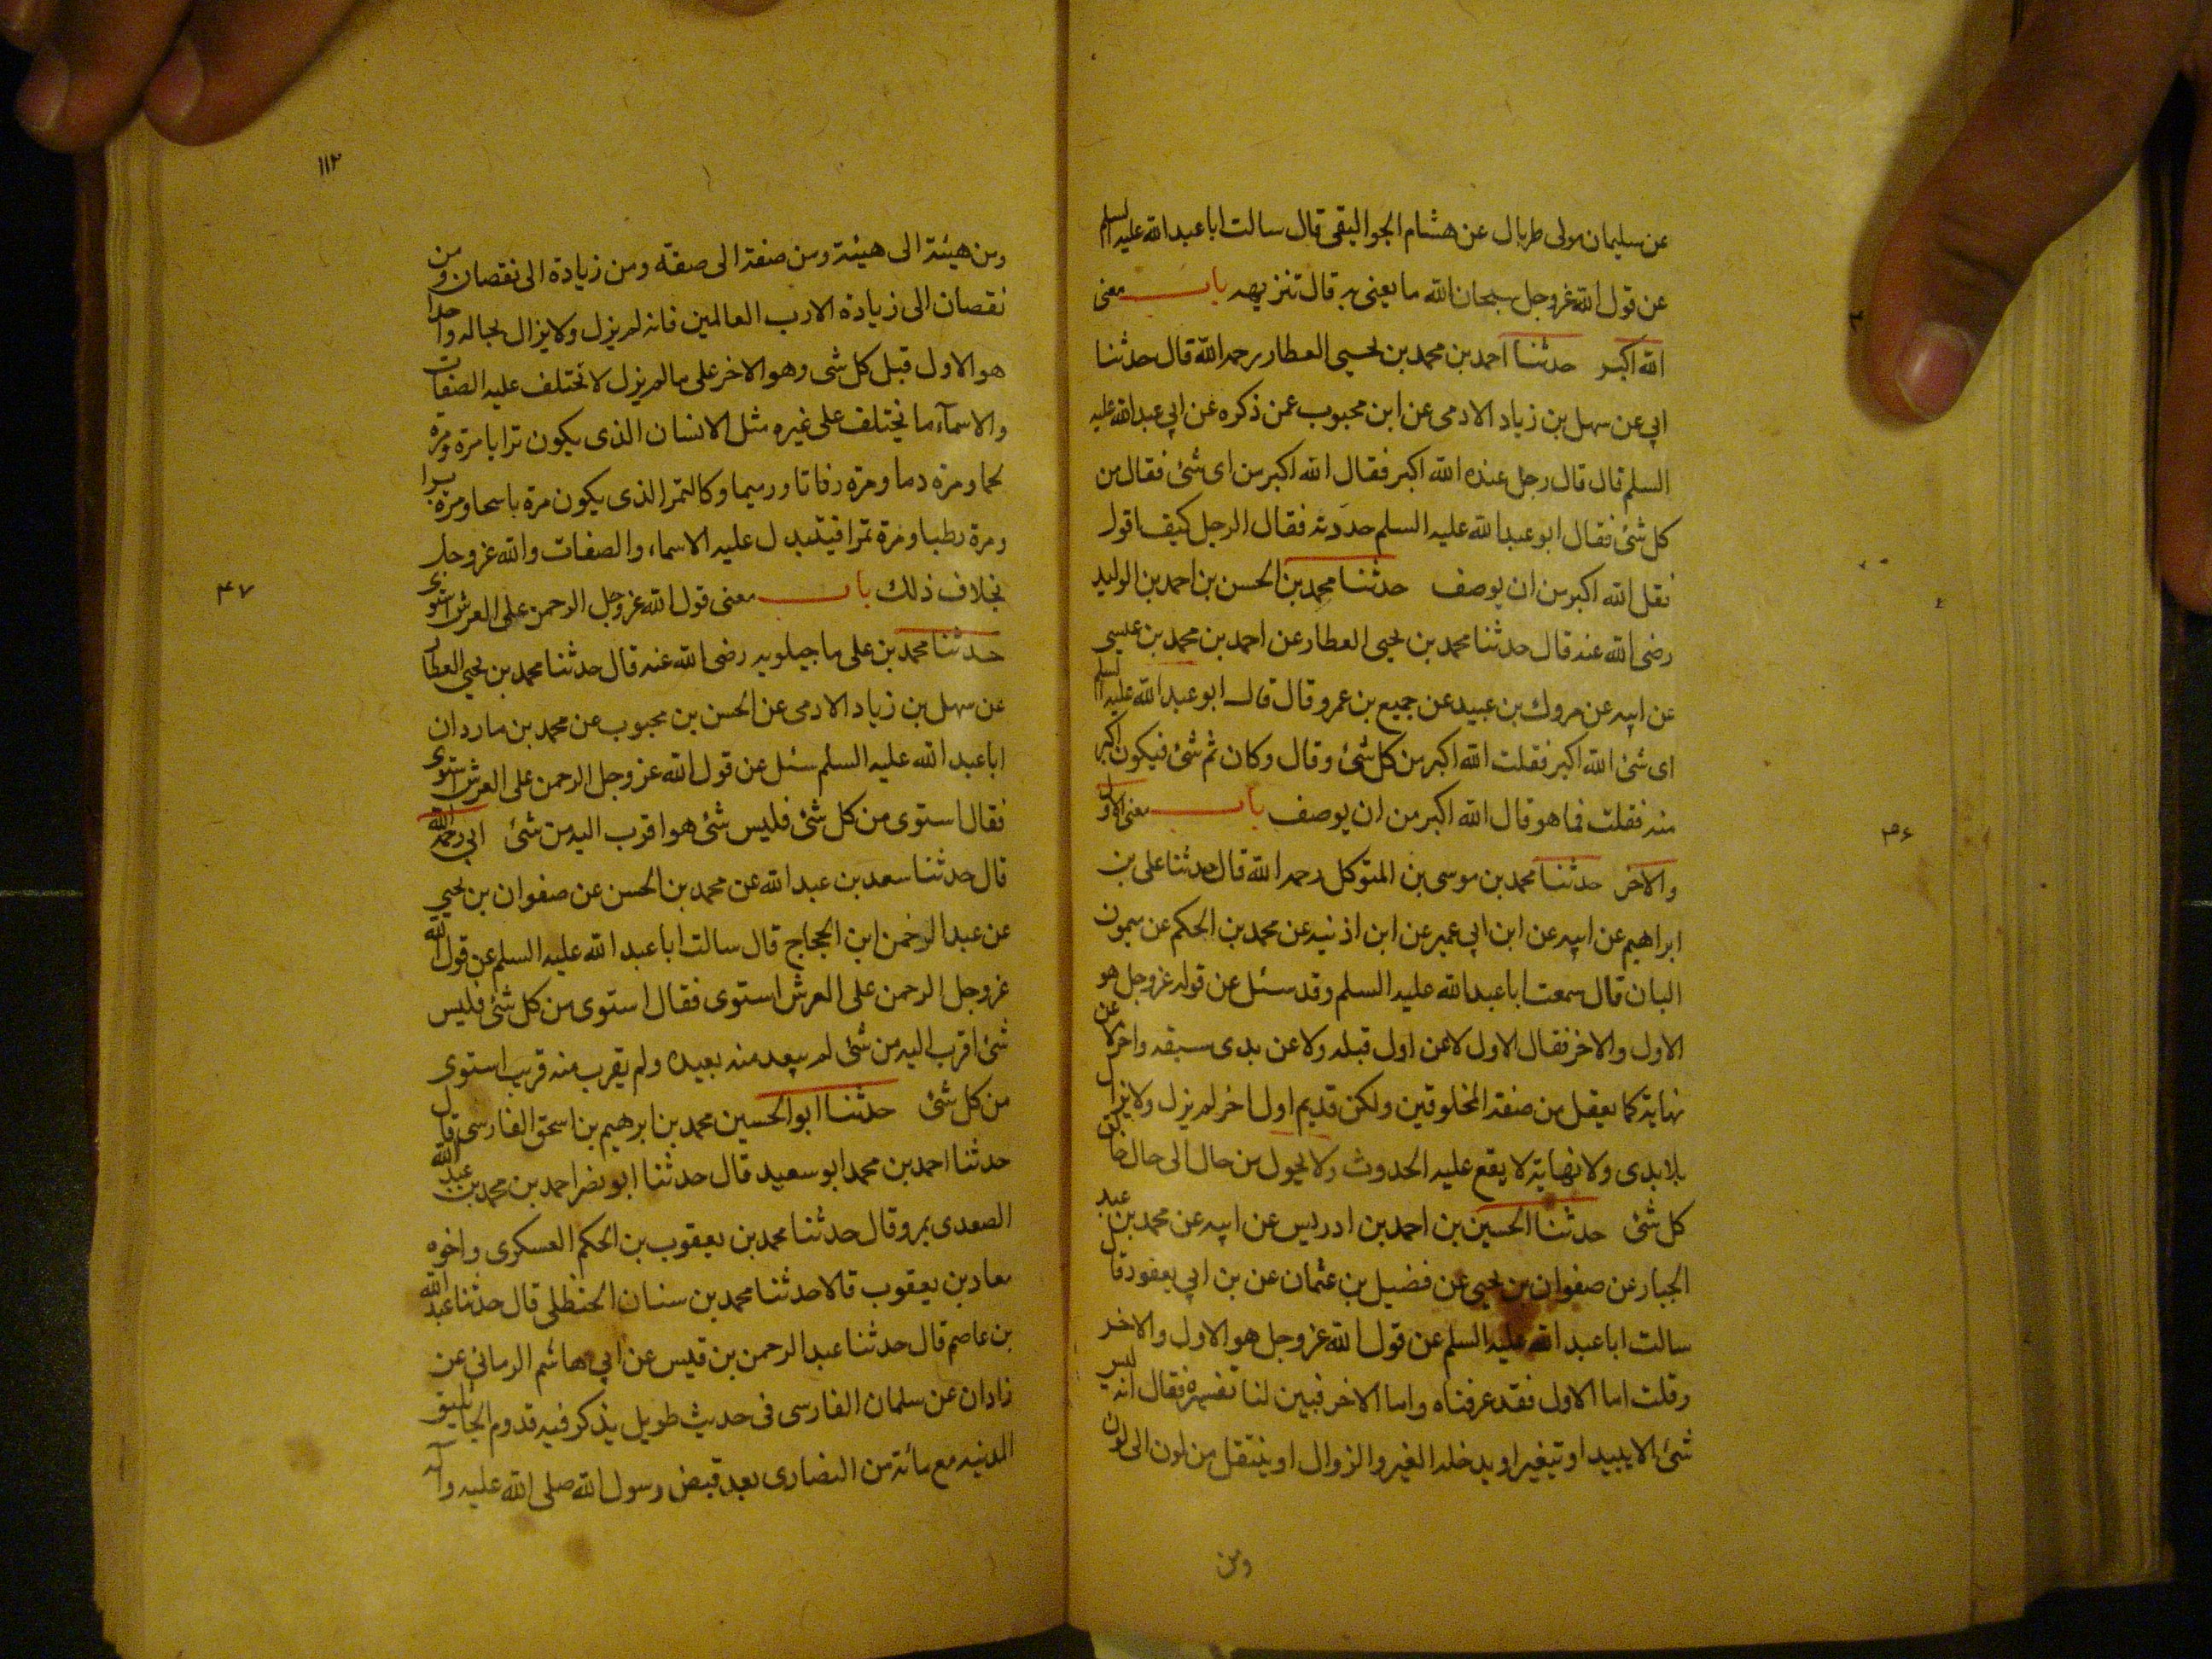 عن سليمان مولى طربال عن هشام الجواليقى قال سالت ابا عبد الله عليه السلم
عن قول الله عز وجل سبحان الله ما يعنى به قال تنزيهه باب معنى
الله اكبر حدثنا احمد بن محمد بن يحيى العطار رحمه الله قال حدثنا
ابي عن سهل بن زياد الادمى عن ابن محبوب عمن ذكره عن ابي عبد الله عليه
السلم قال قال رجل عنده الله اكبر فقال الله اكبر من اى شئ فقال من
كل شئ فقال ابو عبد الله عليه السلم حددته فقال الرجل كيف اقول
فقل الله اكبر من ان يوصف حدثنا محمد بن الحسن بن احمد بن الوليد
رضى الله عنه قال حدثنا محمد بن يحيى العطار عن احمد بن محمد بن عيسى
عن ابيه عن مروك بن عبيد عن جميع بن عمرو قال قال ابو عبد الله عليه السلم
اى شئ الله اكبر فقلت الله اكبر من كل شئ وقال وكان ثم شئ فيكون اكبر
منه فقلت فما هو قال الله اكبر من ان يوصف باب معنى الاول
والاخر حدثنا محمد بن موسى بن المتوكل رحمه الله قال حدثنا على بن
ابراهيم عن ابيه عن ابن ابي عمير عن ابن اذنيه عن محمد بن الحكم عن ميمون
البان قال سمعت ابا عبد الله عليه السلم وقد سئل عن قوله عز وجل هو
الاول والاخر فقال الاول لا عن اول قبله ولا عن بدى سبقه واخر لا عن
نهاية كما يعقل من صفة المخلوقين ولكن قديم اول اخر لم يزل ولا يزال
بلا بدى ولا نهاية لا يقع عليه الحدوث ولا يحول من حال الى حال خالق
كل شئ حدثنا الحسين بن احمد بن ادريس عن ابيه عن محمد بن عبد
الجبار عن صفوان بن يحيى عن فضيل بن عثمان عن بن ابي يعفور قال
سالت ابا عبد الله عليه السلم عن قول الله عز وجل هو الاول والاخر
وقلت اما الاول فقد عرفناه واما الاخر فبين لنا تفسيره فقال انه ليس
شئ الا يبيد او تيغير او يدخله الغير والزوال او ينتقل من لون الى لون
ومن
٤٦
١١٢
ومن هيئة الى هيئة ومن صفة الى صفة ومن زيادة الى نقصان ومن
نقصان الى زيادة الا رب العالمين فانه لم يزل ولا يزال بحاله واحدا
هو الاول قبل كل شى وهو الاخر على ما لم يزل لا تختلف عليه الصفات
والاسمآء ما يختلف على غيره مثل الانسان الذى يكون ترابا مرة ومرة
لحما ومرة دما ومرة رفاتا ورميما وكالتمر الذى يكون مرة باسحا ومرة بسرا
ومرة رطبا ومرة تمرا فيتبدل عليه الاسماء والصفات والله عز وجل
بخلاف ذلك باب معنى قول الله عز وجل الرحمن على العرش استوى
حدثنا محمد بن على ماجيلويه رضى الله عنه قال حدثنا محمد بن يحيى العطار
عن سهل بن زياد الادمى عن الحسن بن محبوب عن محمد بن ماردان
ابا عبد الله عليه السلم سئل عن قول الله عز وجل الرحمن على العرش استوى
فقال استوى من كل شئ فليس شئ هو اقرب اليه من شئ ابي رحمه الله
قال حدثنا سعد بن عبد الله عن محمد بن الحسن عن صفوان بن يحيى
عن عبد الرحمن ابن الحجاج قال سالت ابا عبد الله عليه السلم عن قول الله
عز وجل الرحمن على العرش استوى فقال استوى من كل شئ فليس
شئ اقرب اليه من شئ لم يبعد منه بعيده ولم يقرب منه قريب استوى
من كل شئ حدثنا ابو الحسين محمد بن ابرهيم بن اسحق الفارسى قال
حدثنا احمد بن محمد ابو سعيد قال حدثنا ابو نضر احمد بن محمد بن عبد الله
الصعدى بمرو قال حدثنا محمد بن يعقوب بن الحكم العسكرى واخوه
معاد بن يعقوب قالا حدثنا محمد بن سنان الحنظلى قال حدثنا عبد الله
بن عاصم قال حدثنا عبد الرحمن بن قيس عن ابي هاشم الرمانى عن
زادان عن سلمان الفارسى فى حديث طويل يذكر فيه قدوم الجاثليق
المدنيه مع مائة من النصارى بعد قبض رسول الله صلى الله عليه وآله
٤٧